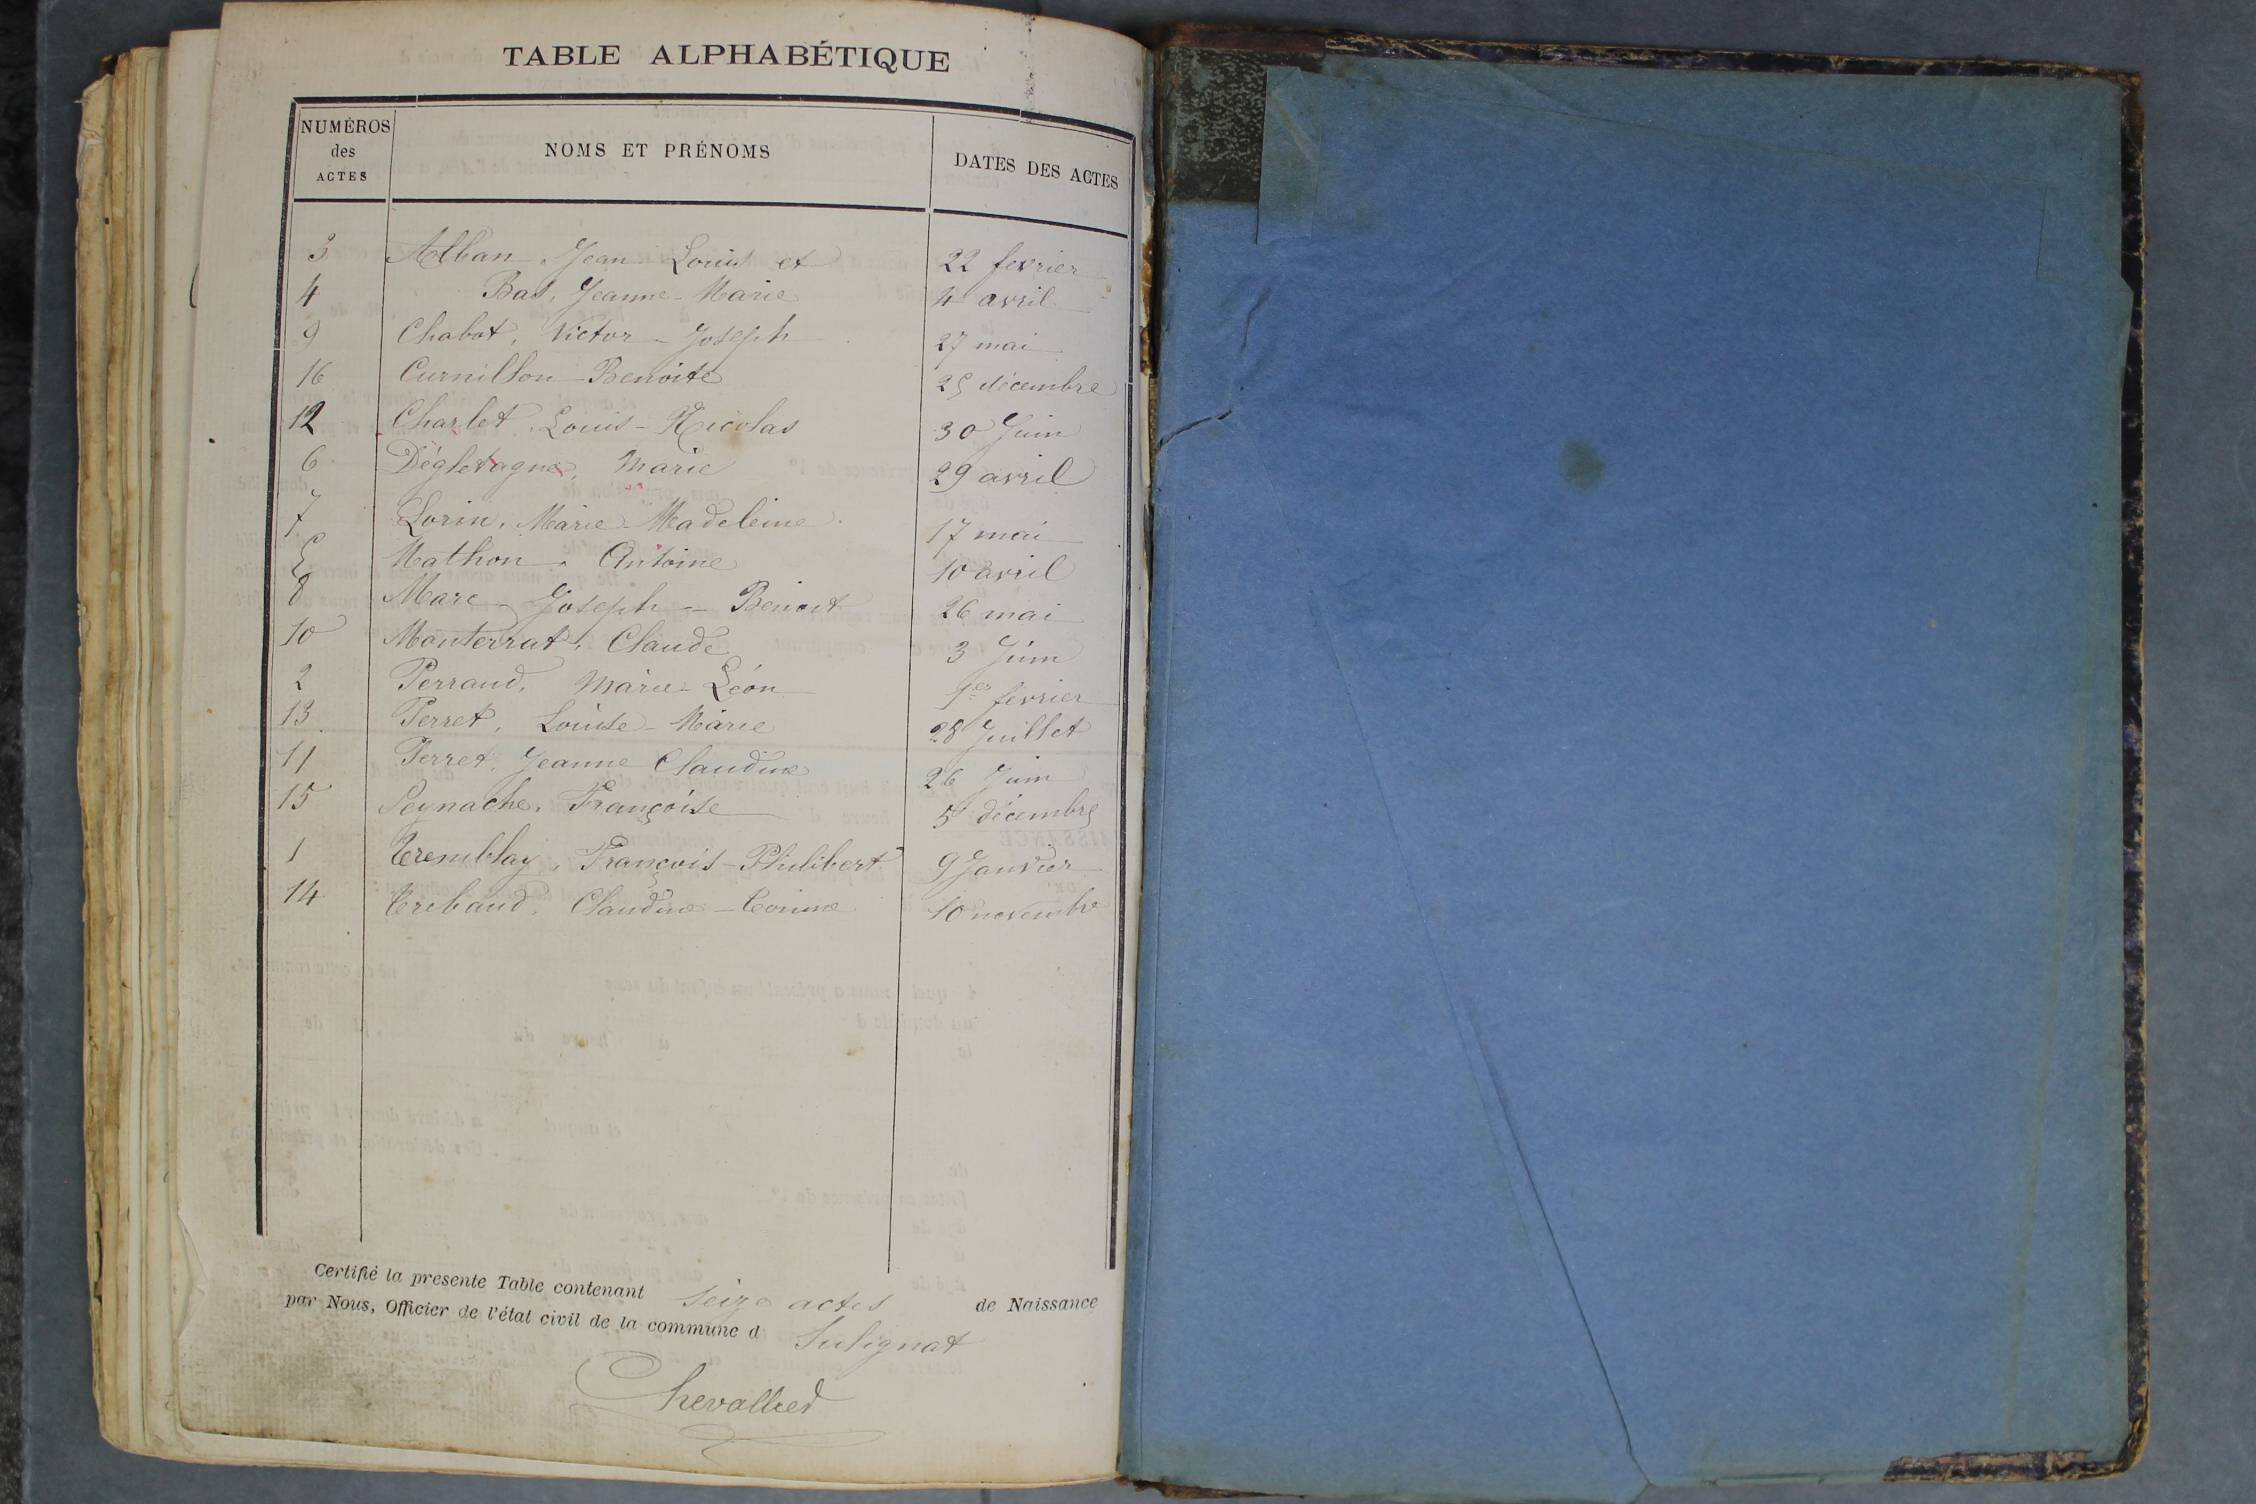 TABLE ALPHABÉTIQUE
NUMÉROS des ACTES NOMS ET PRÉNOMS DATES DES ACTES
3 Alban, Jean Louis et 22 fevrier
4 Bas, Jeanne-Marie 4 avril
9 Chabot, Victor-Joseph 27 mai
16 Curnillon Benoite 25 décembre
12 Charlet, Louis-Nicolas 30 Juin
6 Dégletagne, Marie 29 avril
7 Lorin, Marie Madeleine 17 mai
5 Mathon, Antoine 10 avril
8 Marc Joseph-Benoit 26 mai
10 Monterrat, Claude 3 Juin
2 Perraud, Marie-Léon 1er fevrier
13 Perret, Louise-Marie 28 Juillet
11 Perret, Jeanne Claudine 26 Juin
15 Peynache, Françoise 5 décembre
1 Tremblay, François-Philibert 9 Janvier
14 Trebaud, Claudine 10 novembre
Certifié la presente Table contenant seize actes de Naissance
par Nous, Officier de l'état civil de la commune d Sulignat